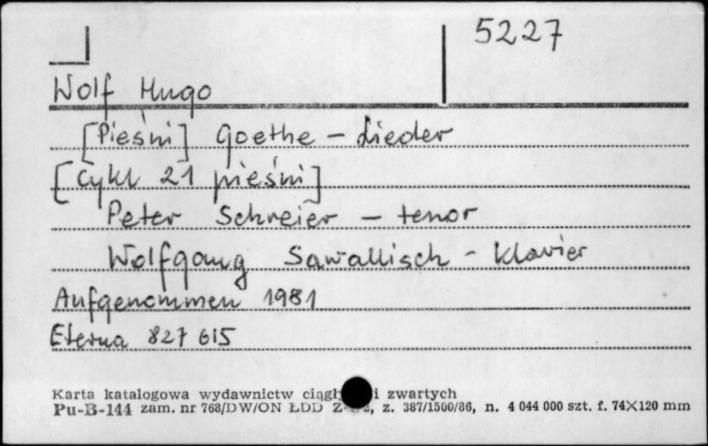 5227
Wolf Hugo
[Pieśni] Goethe - Lieder
[Cykl 21 pieśni]
Peter Schreier - tenor
Wolfgang Sawallisch - Klavier
Aufgenommen 1981
Eterna 827 615
Karta katalogowa wydawnictw i zwartych
Pu-B-144 zam. nr 768/DW/ON ŁDD z. 387/1500/86, n. 4 044 000 szt. f. 74×120 mm